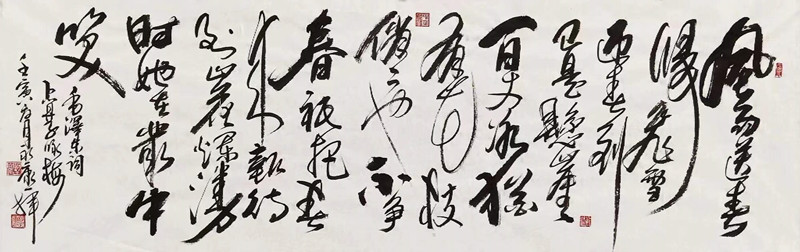 风雨送春
歸飛雪
迎春到
已是懸崖
百丈冰猶
有花枝
俏〻也不争
春祇把春
来報待
到山花爛漫
時她在叢中
笑
毛澤東詞
卜算子咏梅
壬寅月